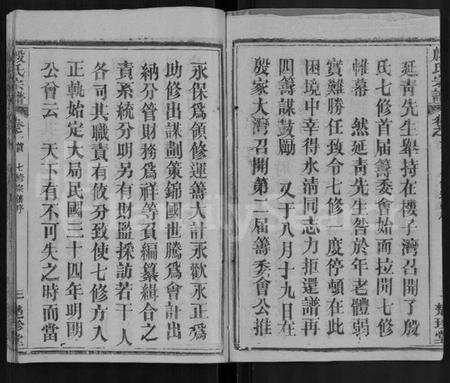 殷氏宗譜
延靑先生舉持在樓子灣召開了殷
氏七修首届籌委會始而拉開七修
帷幕 然延靑先生咎於年老體弱
實難勝任致令七修一度停頓在此
困境中幸得永淸同志力拒還譜再
四籌謀鼓勵 又于八月十九日在
殷家大灣召開第二届籌委會公推
永保爲領修運善大計永歡永正爲
助修出謀劃策錦國世騰爲會計出
納分管財務爲祥等頁編纂緝合之
責系統分明另有財監採訪若干人
各司其職責有攸分致使七修方入
正軌始定大局民國三十四年明明
公會云 天下有不可失之時而當
殷氏宗譜
卷首
七修宗譜序
三